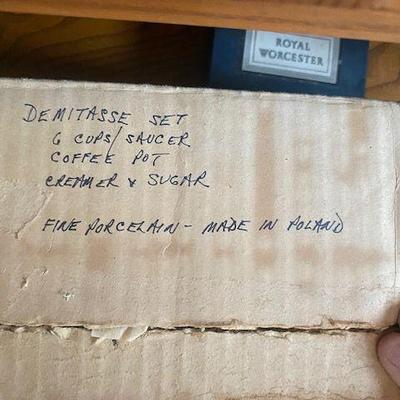 ROYAL
WORCESTER
DEMITASSE SET
6 CUPS/SAUCER
COFFEE POT
CREAMER & SUGAR
FINE PORCELAIN - MADE IN POLAND